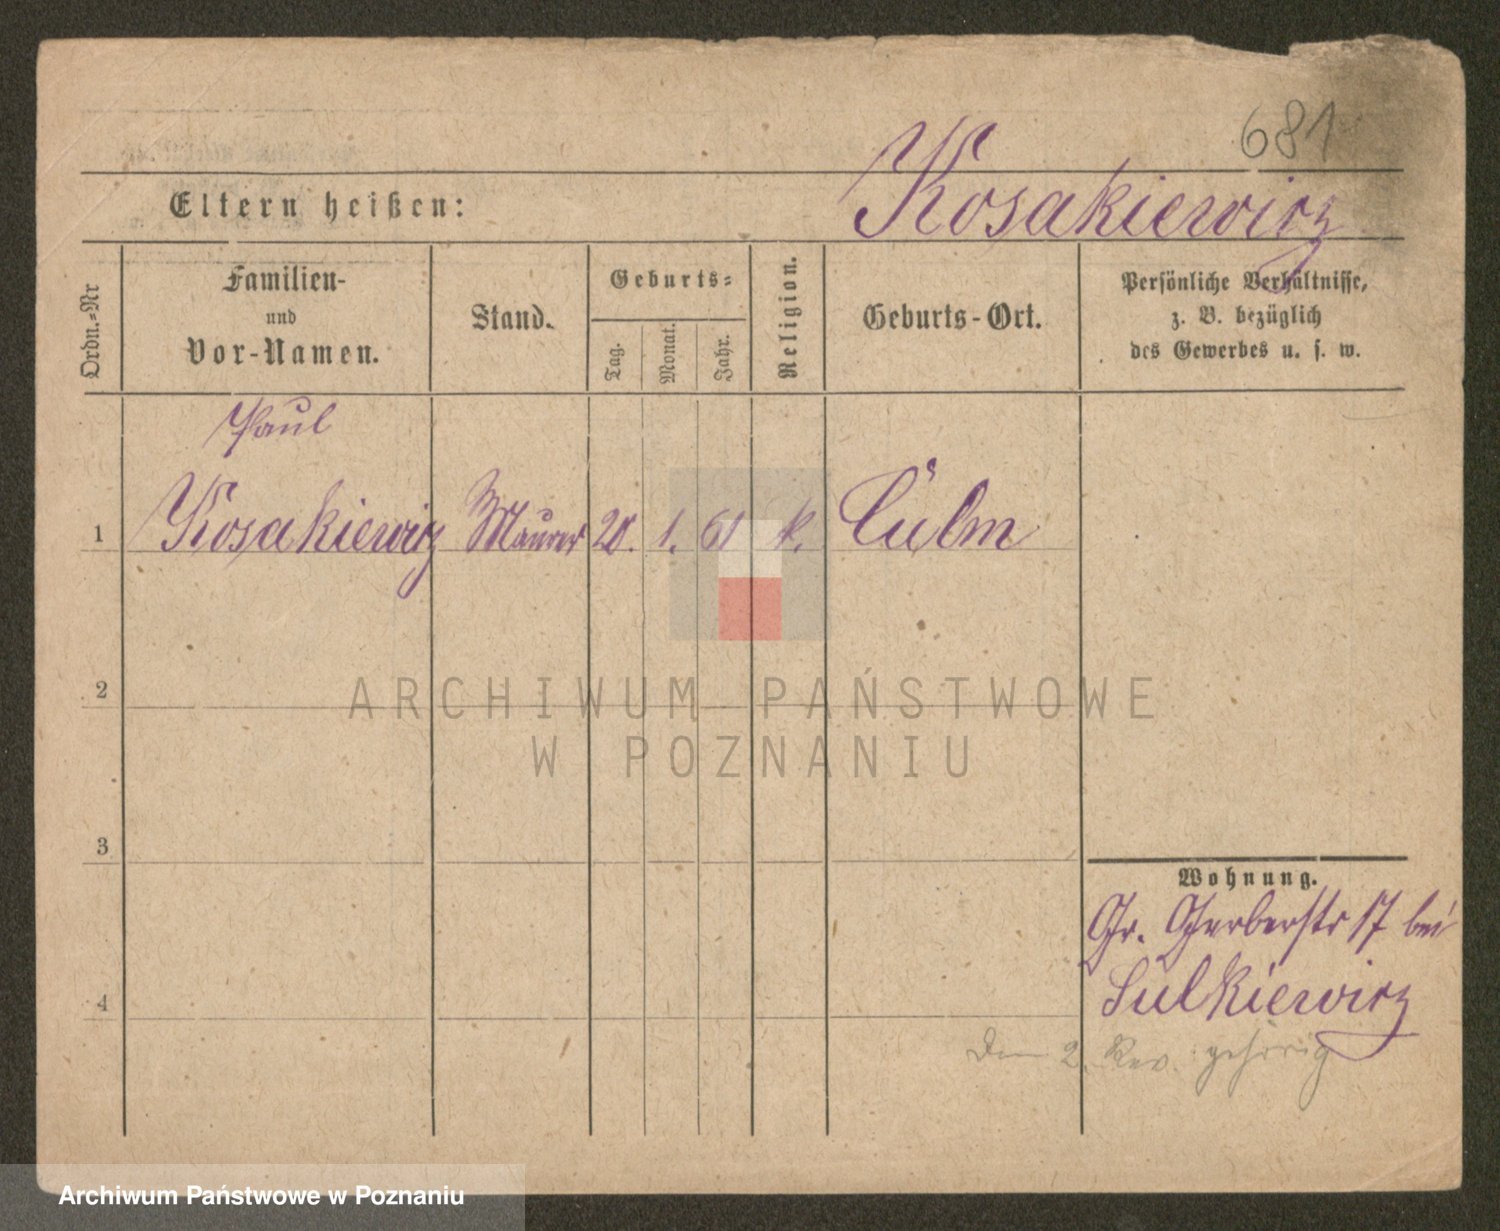 681
Kosakiewicz
Eltern heißen:
Ordn.-Nr
Familien-
und
Vor-Namen.
Stand.
Geburts-
Tag.
Monat.
Jahr.
Religion.
Geburts-Ort.
Persönliche Verhältnisse,
z. B. bezüglich
des Gewerbes u. s. w.
Paul
1 Kosakiewicz Maurer 20. 1. 61 k. Culm
2
ARCHIWUM PAŃSTWOWE
W POZNANIU
3
Wohnung.
Gr. Gerberstr 17 bei
Sulkiewicz
4
Dem 2. Rev. gehörig
Archiwum Państwowe w Poznaniu